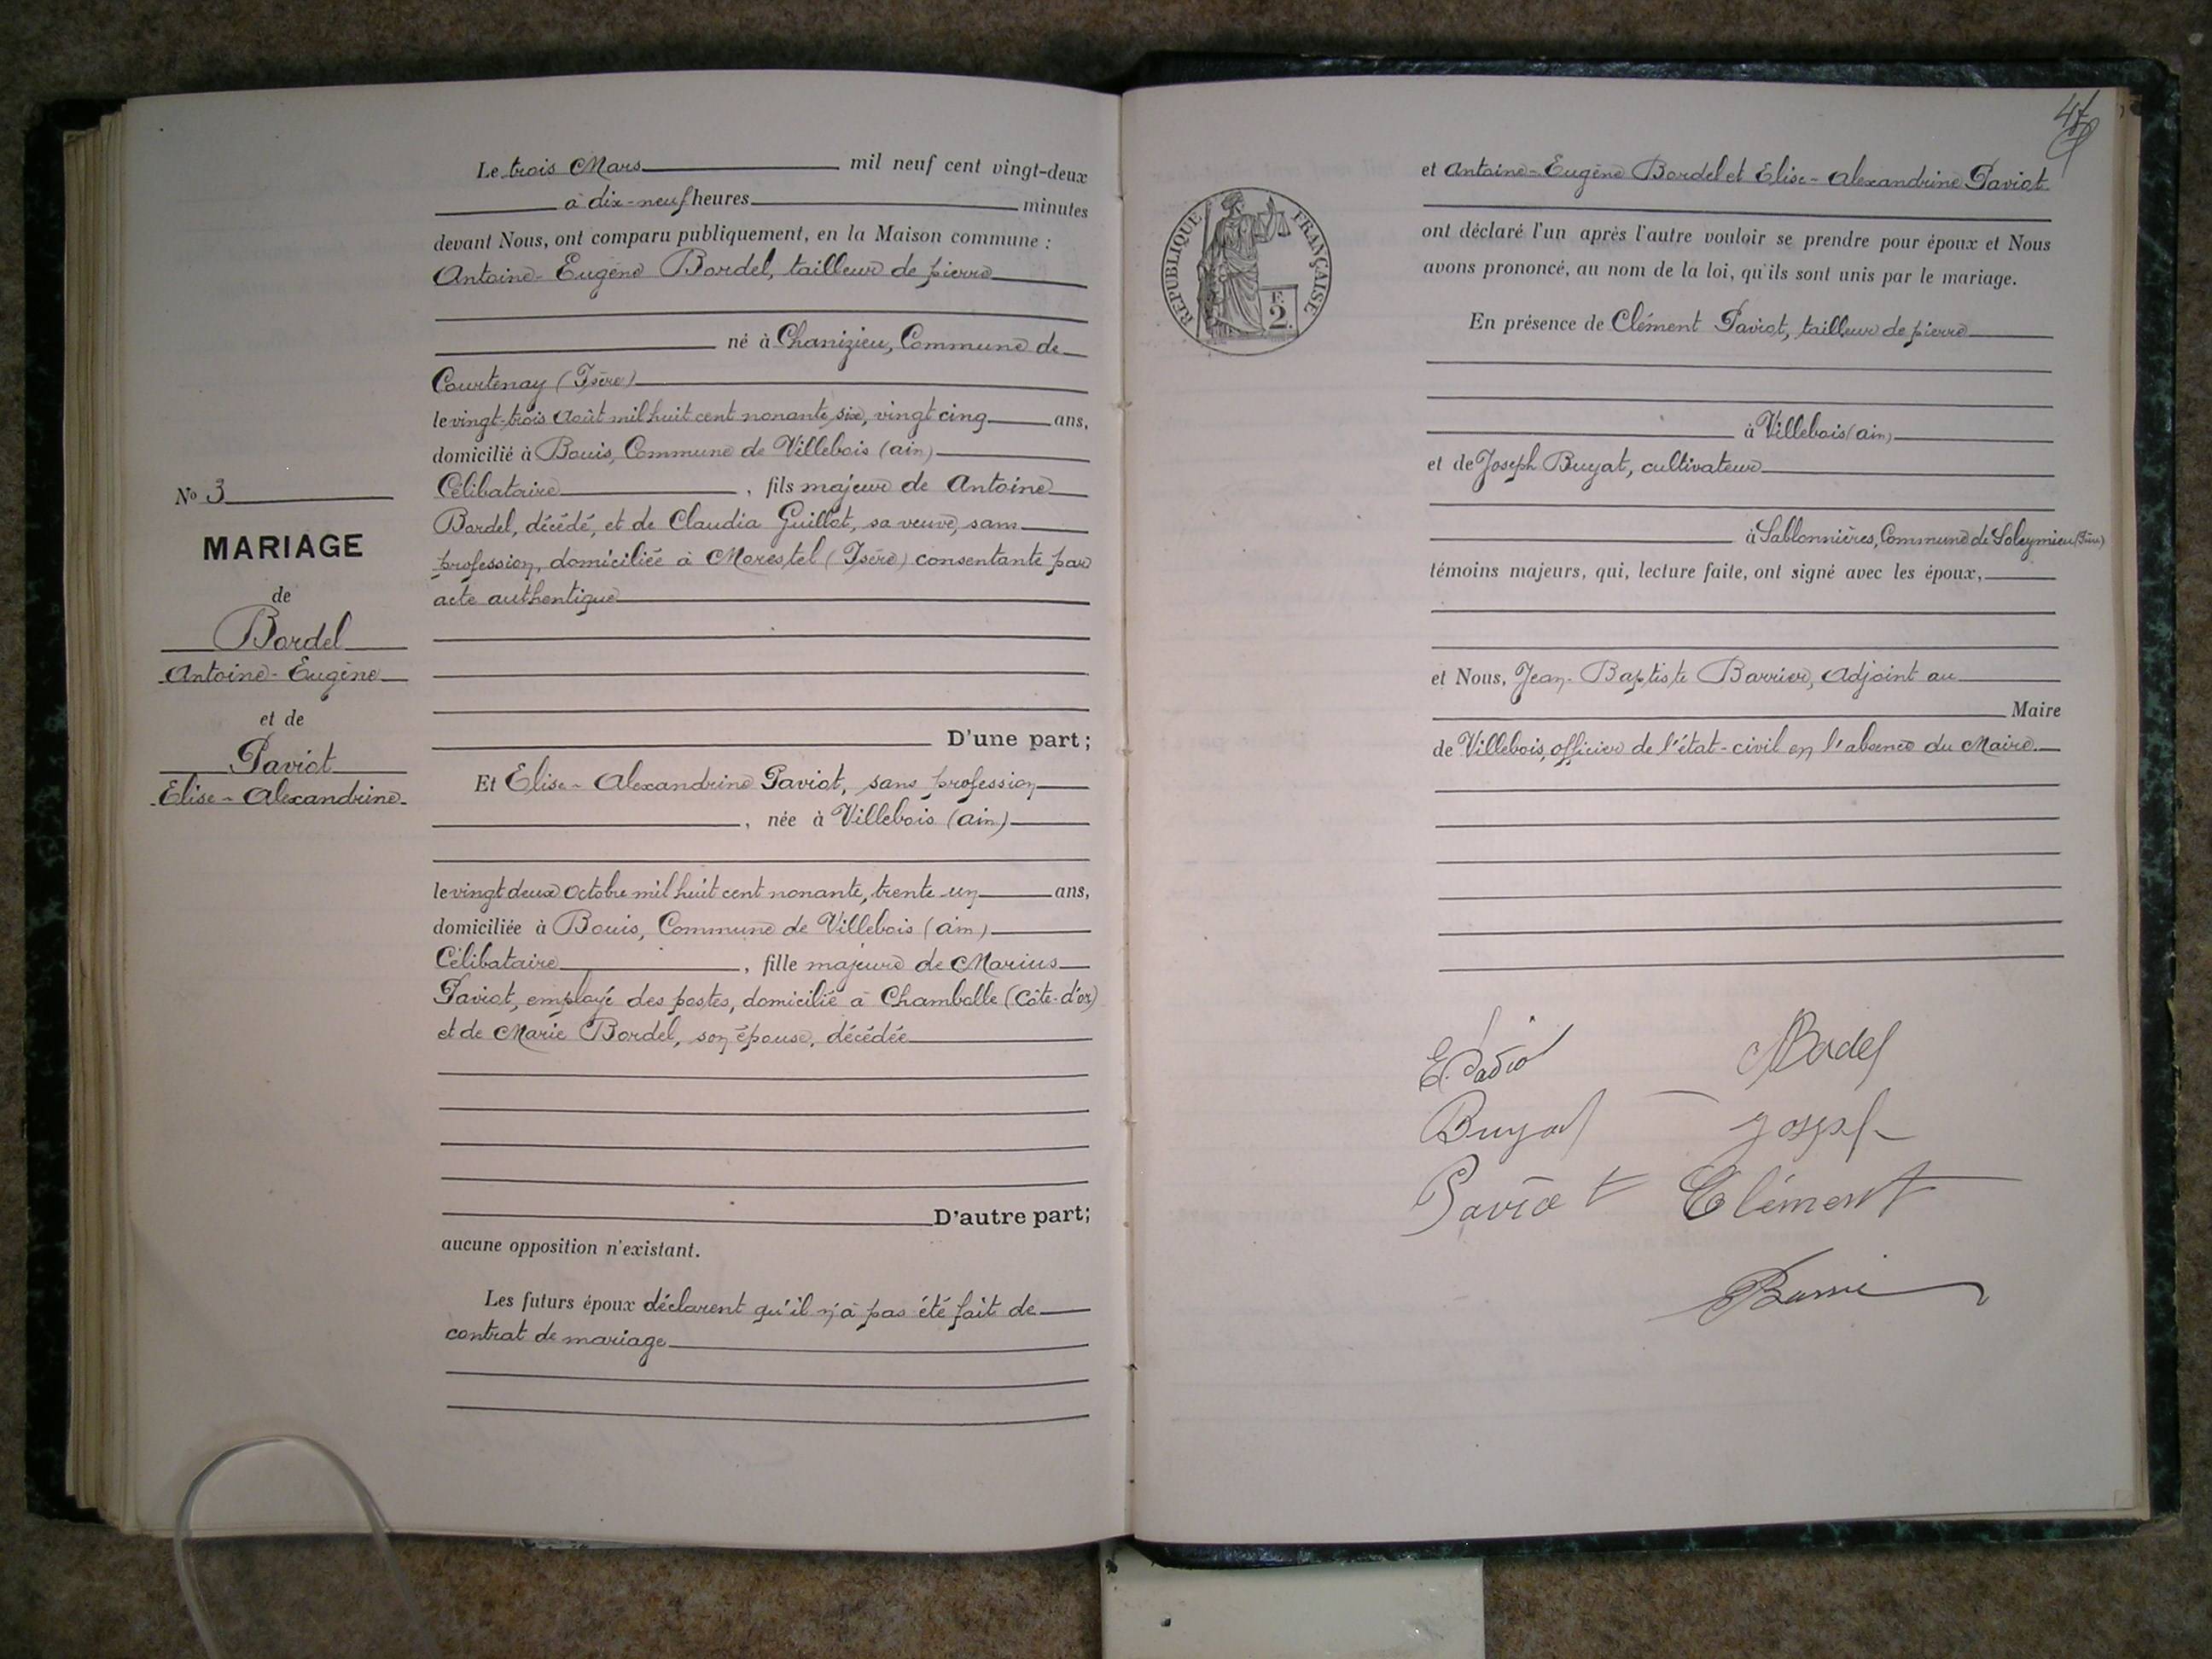 Le trois Mars mil neuf cent vingt-deux
à dix-neuf heures minutes
devant Nous, ont comparu publiquement, en la Maison commune :
Antoine-Eugène Bordel, tailleur de pierre
né à Chanizieu, Commune de
Courtenay (Isère)
le vingt-trois Août mil huit cent nonante six, vingt cinq ans,
domicilié à Bouis, Commune de Villebois (ain)
Célibataire, fils majeur de Antoine
Bordel, décédé, et de Claudia Guillot, sa veuve, sans
profession, domiciliée à Morestel (Isère) consentante par
acte authentique
D'une part;
Et Elise-Alexandrine Paviot, sans profession
, née à Villebois (ain)
le vingt deux Octobre mil huit cent nonante, trente un ans,
domiciliée à Bouis, Commune de Villebois (ain)
Célibataire, fille majeure de Marius
Paviot, employé des postes, domicilié à Chambolle (Côte-d'or)
et de Marie Bordel, son épouse, décédée
D'autre part;
aucune opposition n'existant.
Les futurs époux déclarent qu'il n'a pas été fait de
contrat de mariage
No 3
MARIAGE
de
Bordel
Antoine-Eugène
et de
Paviot
Elise-Alexandrine
47
et Antoine-Eugène Bordel et Elise-Alexandrine Paviot
ont déclaré l'un après l'autre vouloir se prendre pour époux et Nous
avons prononcé, au nom de la loi, qu'ils sont unis par le mariage.
REPUBLIQUE FRANÇAISE
F.
2.
En présence de Clément Paviot, tailleur de pierre
à Villebois (ain)
et de Joseph Buyat, cultivateur
à Sablonnières, Commune de Soleymieu (Isère)
témoins majeurs, qui, lecture faite, ont signé avec les époux,
et Nous, Jean-Baptiste Barrier, Adjoint au
Maire
de Villebois, officier de l'état-civil en l'absence du Maire
E. Paviot Bordel
Buyat Joseph
Paviot Clément
Barrier